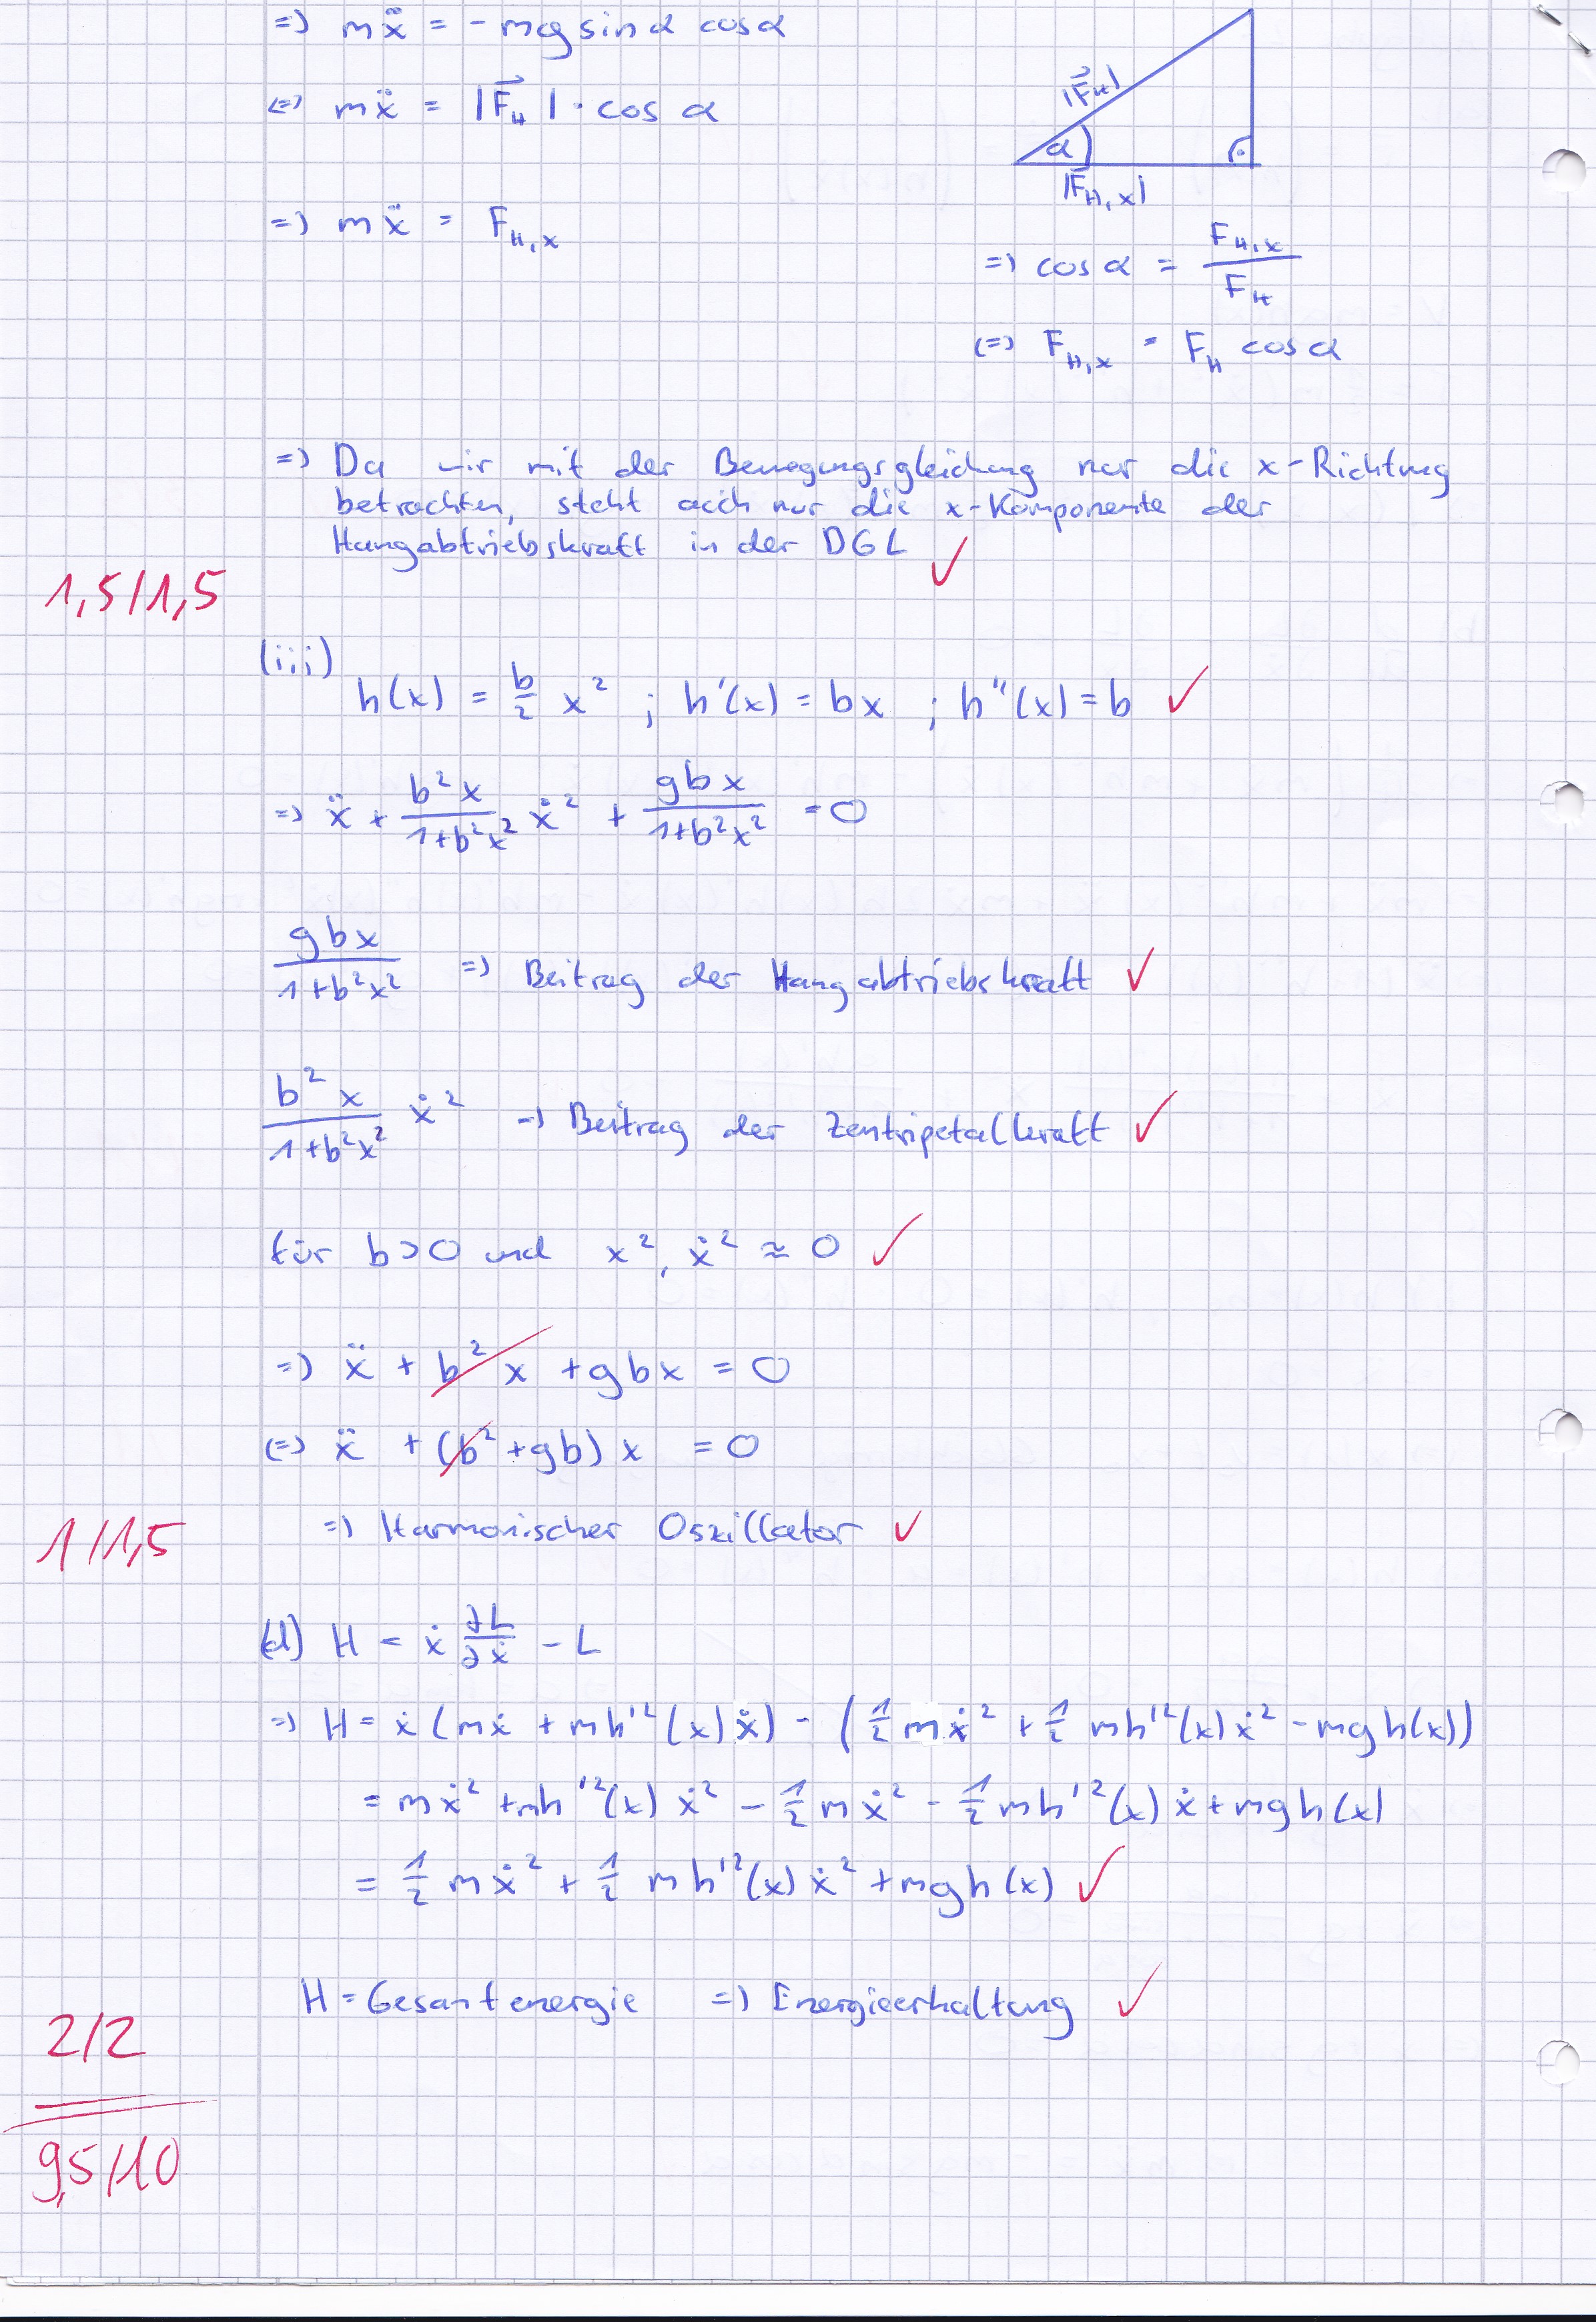 => mẍ = - mg sin α cos α
<=> mẍ = |F⃗_H| · cos α
=> mẍ = F_H,x
|F⃗_H|
α
|F_H,x|
=> cos α = F_H,x / F_H
<=> F_H,x = F_H cos α
=> Da wir mit der Bewegungsgleichung nur die x-Richtung
betrachten, steht auch nur die x-Komponente der
Hangabtriebskraft in der DGL ✓
1,5/1,5
(iii)
h(x) = b/2 x² ; h'(x) = bx ; h''(x) = b ✓
=> ẍ + b²x/(1+b²x²) ẋ² + gbx/(1+b²x²) = 0
gbx/(1+b²x²) => Beitrag der Hangabtriebskraft ✓
b²x/(1+b²x²) ẋ² => Beitrag der Zentripetalkraft ✓
für b>0 und x², ẋ² ≈ 0 ✓
=> ẍ + b² x + gbx = 0
<=> ẍ + (b² + gb) x = 0
=> Harmonischer Oszillator ✓
1/1,5
(d) H = ẋ ∂L/∂ẋ - L
=> H = ẋ (mẋ + mh'²(x) ẋ) - (1/2 mẋ² + 1/2 mh'²(x) ẋ² - mgh(x))
= mẋ² + mh'²(x) ẋ² - 1/2 mẋ² - 1/2 mh'²(x) ẋ + mgh(x)
= 1/2 mẋ² + 1/2 mh'²(x) ẋ² + mgh(x) ✓
H = Gesamtenergie => Energieerhaltung ✓
2/2
9,5/10